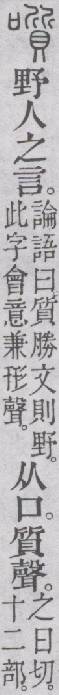 野人之言。
論語曰質勝文則野。
此字會意兼形聲。
从口。質聲。
之日切。
十二部。